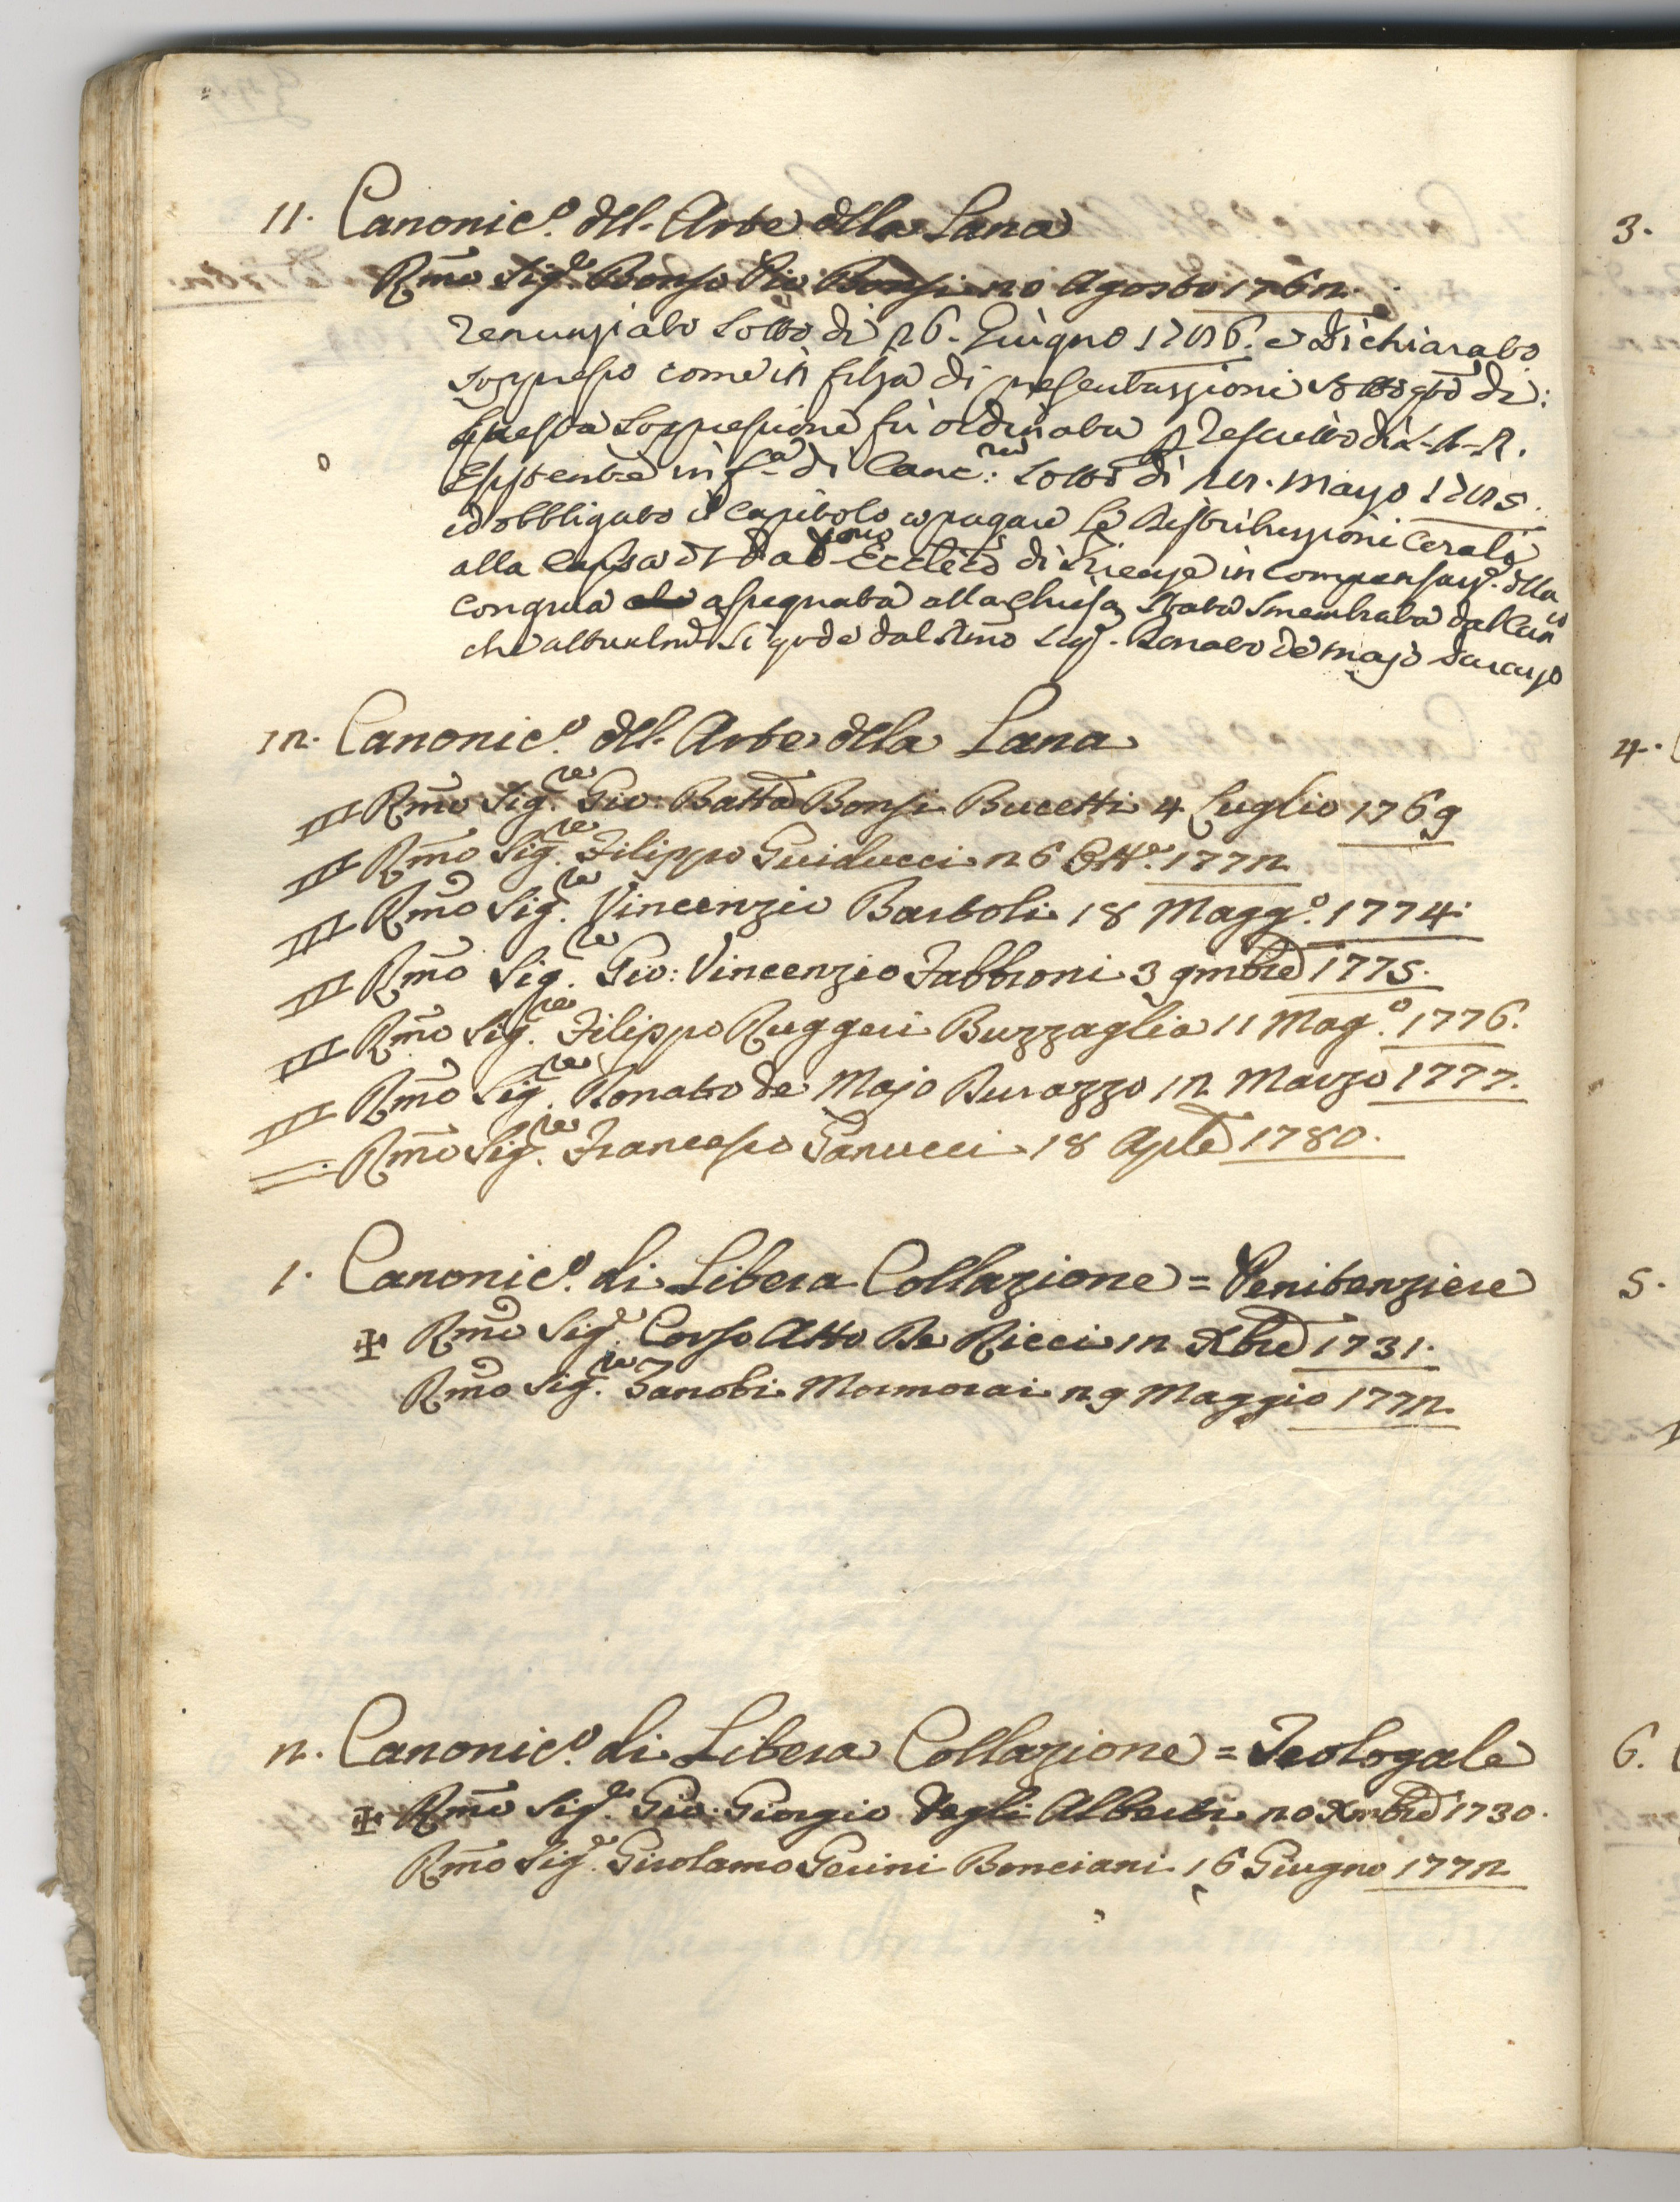 11. Canonic.º dell'Arte della Lana
Rmo Sig.re Bonso Pio Bonsi 20 Agosto 1762.
renunziato sotto dì 26. Giugno 1786. e dichiarato
soppresso come in filza di presentazzioni sotto qto dì:
questa soppressione fù ordinata p Rescritto di S.A.R.
esistente in fa di Canc:ria sotto dì Marzo 1785.
ed obbligato il Capitolo a pagare le distribuzzioni corali
alla Cassa di Eccleco di Firenze in compensaze. della
congrua assegnata alla Chiesa stata smembrata dal Canco
che attualme si gode dal Rmo Sig.r Donato de Majo Durazzo
12. Canonic.º dell'Arte della Lana
Rmo Sig.re Gio: Batta Bonsi Bucetti 4 Luglio 1769
Rmo Sig.re Filippo Guiducci 26 Ott.e 1772
Rmo Sig.re Vincenzio Bartoli 18 Magg.º 1774.
Rmo Sig.re Gio: Vincenzio Fabbroni 3 9mbre 1775.
Rmo Sig.re Filippo Ruggeri Buzzaglia 11 Mag.º 1776.
Rmo Sig.re Donato de Majo Durazzo 12 Marzo 1777.
Rmo Sig.re Francesco Vanucci 18 Aple 1780.
1. Canonic.º di Libera Collazione = Penitenziere
✠ Rmo Sig.re Corso Atto De Ricci 12 Xbre 1731.
Rmo Sig.re Zanobi Mormorai 29 Maggio 1772.
2. Canonic.º di Libera Collazione = Teologale
✠ Rmo Sig.re Gio: Giorgio Degli Alberti 20 Xmbre 1730.
Rmo Sig.re Girolamo Gerini Bonciani 16 Giugno 1772
3.
4.
5.
6.